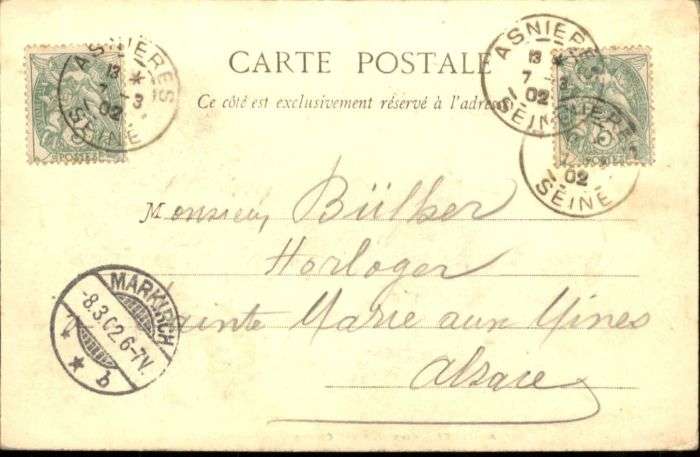 CARTE POSTALE
Ce côté est exclusivement réservé à l'adresse
ASNIERES
13 *
7 -3
02
SEINE
ASNIERES
13 *
7
02
SEINE
02
SEINE
POSTES
Monsieur Bülher
Horloger
à Sainte Marie aux Mines
Alsace
MARKIRCH
-8.3.02.6-7V.
* * b